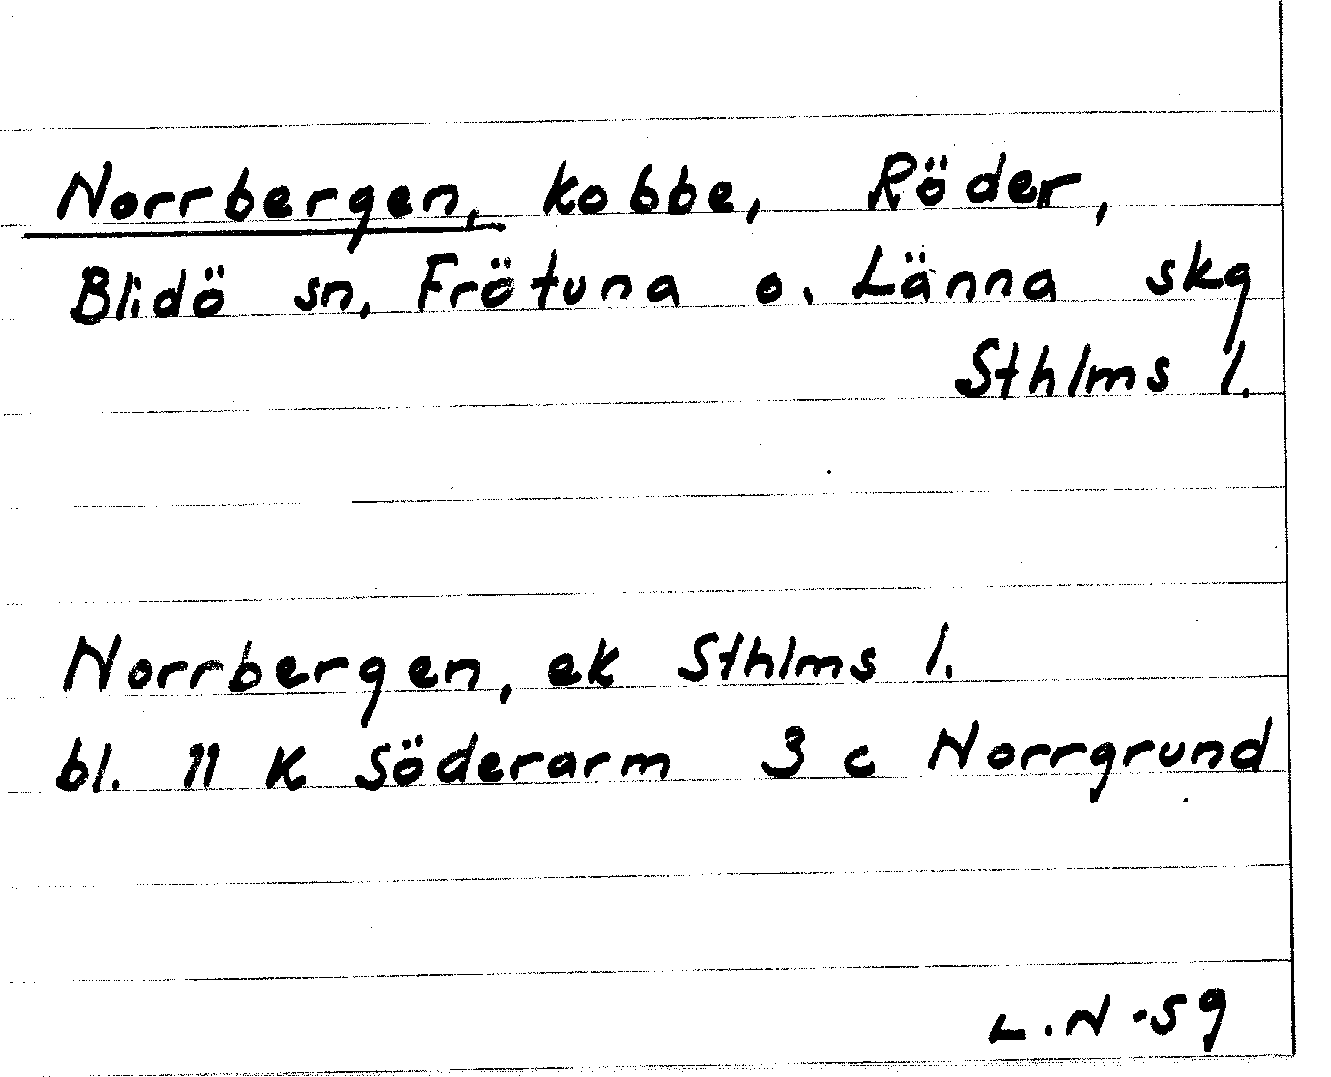 Norrbergen, kobbe, Röder,
Blidö sn, Frötuna o. Länna skg
Sthlms l.
Norrbergen, ek Sthlms l.
bl. 11 K Söderarm 3 c Norrgrund
L.N -59